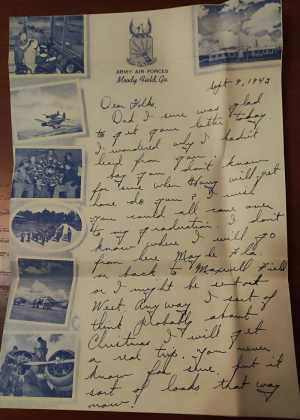 ARMY AIR FORCES
Moody Field, Ga.
Sept. 9, 1943
Dear Folks,
Dad I sure was glad
to get your letter today
I wondered why I hadn't
from you.
Say you don't know
for sure when Harry will get
home do you? I wish
you could all come over
to my graduation. I don't
know where I will go
from here Maybe Fla
or back to Maxwell Field
or I might be sent out
West. Any way I sort of
think probably about
Christmas I will get
a real trip. You never
know for sure but it
sort of looks that way
now.